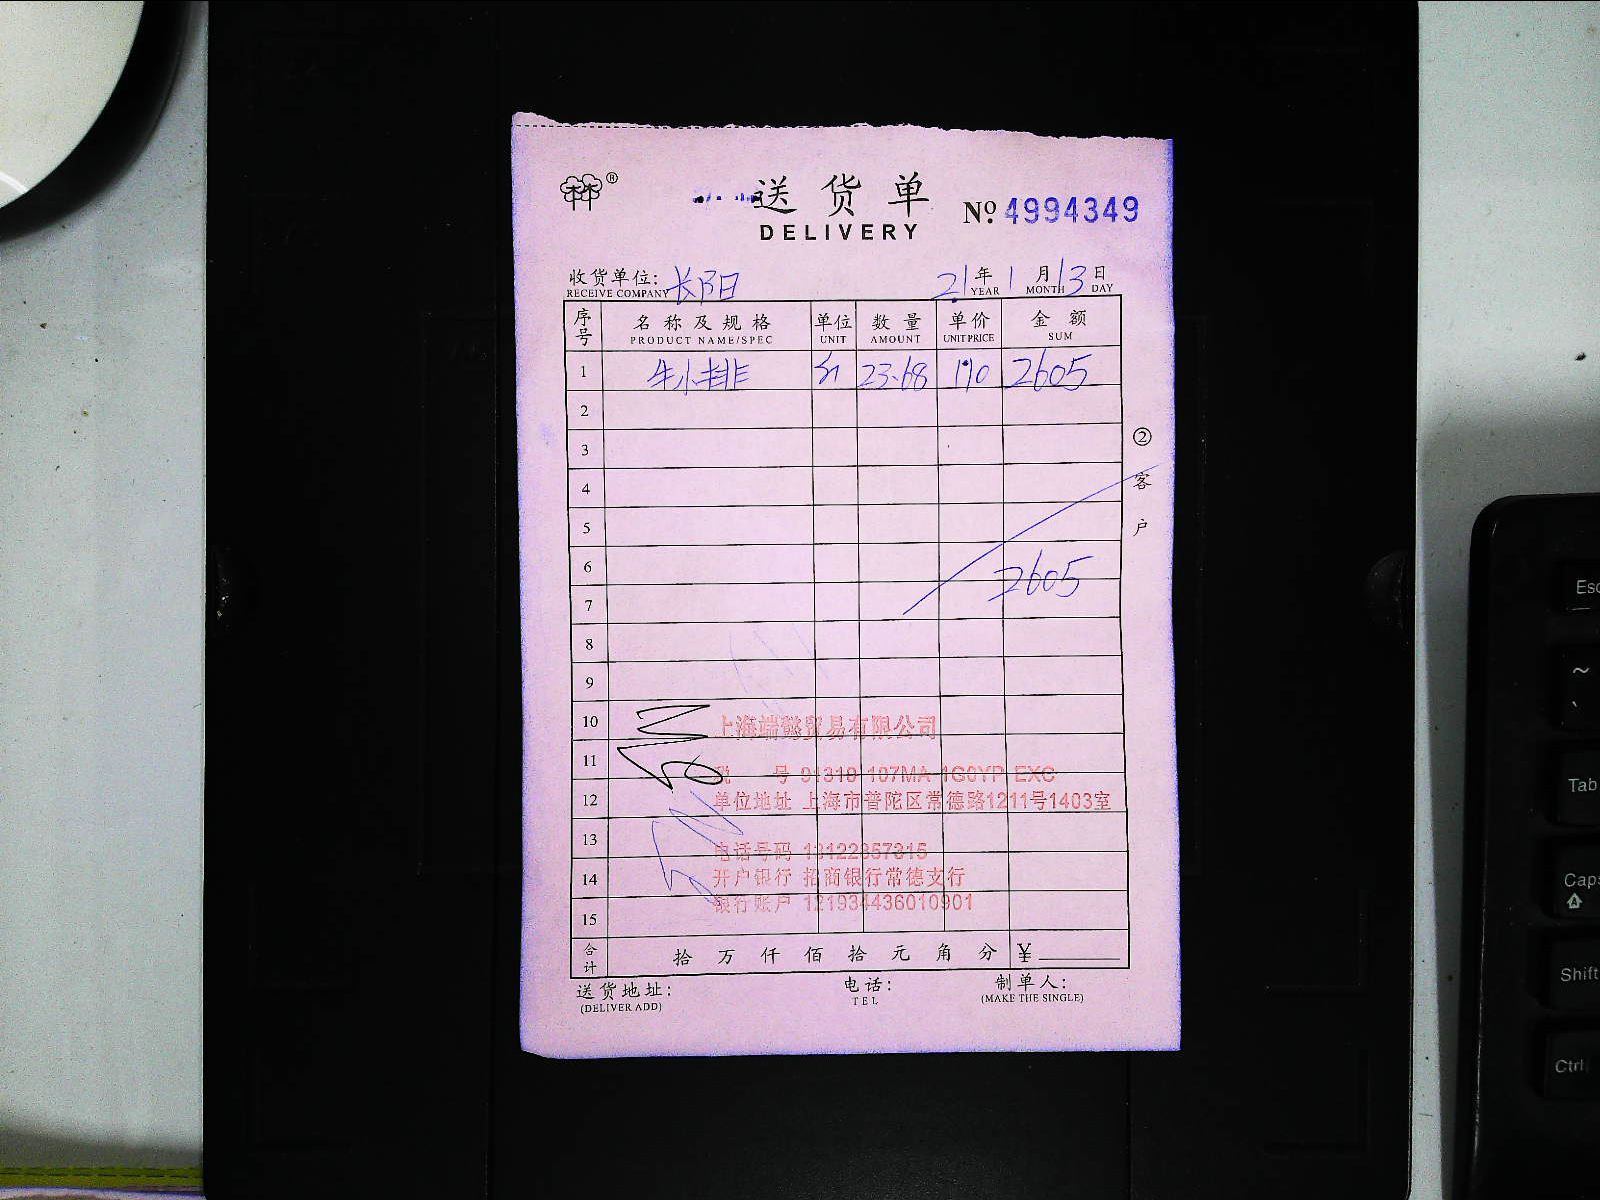 送货单
DELIVERY
№ 4994349
收货单位: 长阳
RECEIVE COMPANY
21年 1月 13日
YEAR MONTH DAY
序号 名称及规格 单位 数量 单价 金额
PRODUCT NAME/SPEC UNIT AMOUNT UNIT PRICE SUM
1 牛小排 23.68 110 2605
2
3
4
5
6 2605
7
8
9
10
11
12
13
14
15
② 客户
上海端懿贸易有限公司
税 号 91310 107MA 1G0YP EXC
单位地址 上海市普陀区常德路1211号1403室
电话号码 13122857315
开户银行 招商银行常德支行
银行账户 121934436010901
合计 拾 万 仟 佰 拾 元 角 分 ¥
送货地址: 电话: 制单人:
(DELIVER ADD) TEL (MAKE THE SINGLE)
Esc
~
`
Tab
Caps
Shift
Ctrl